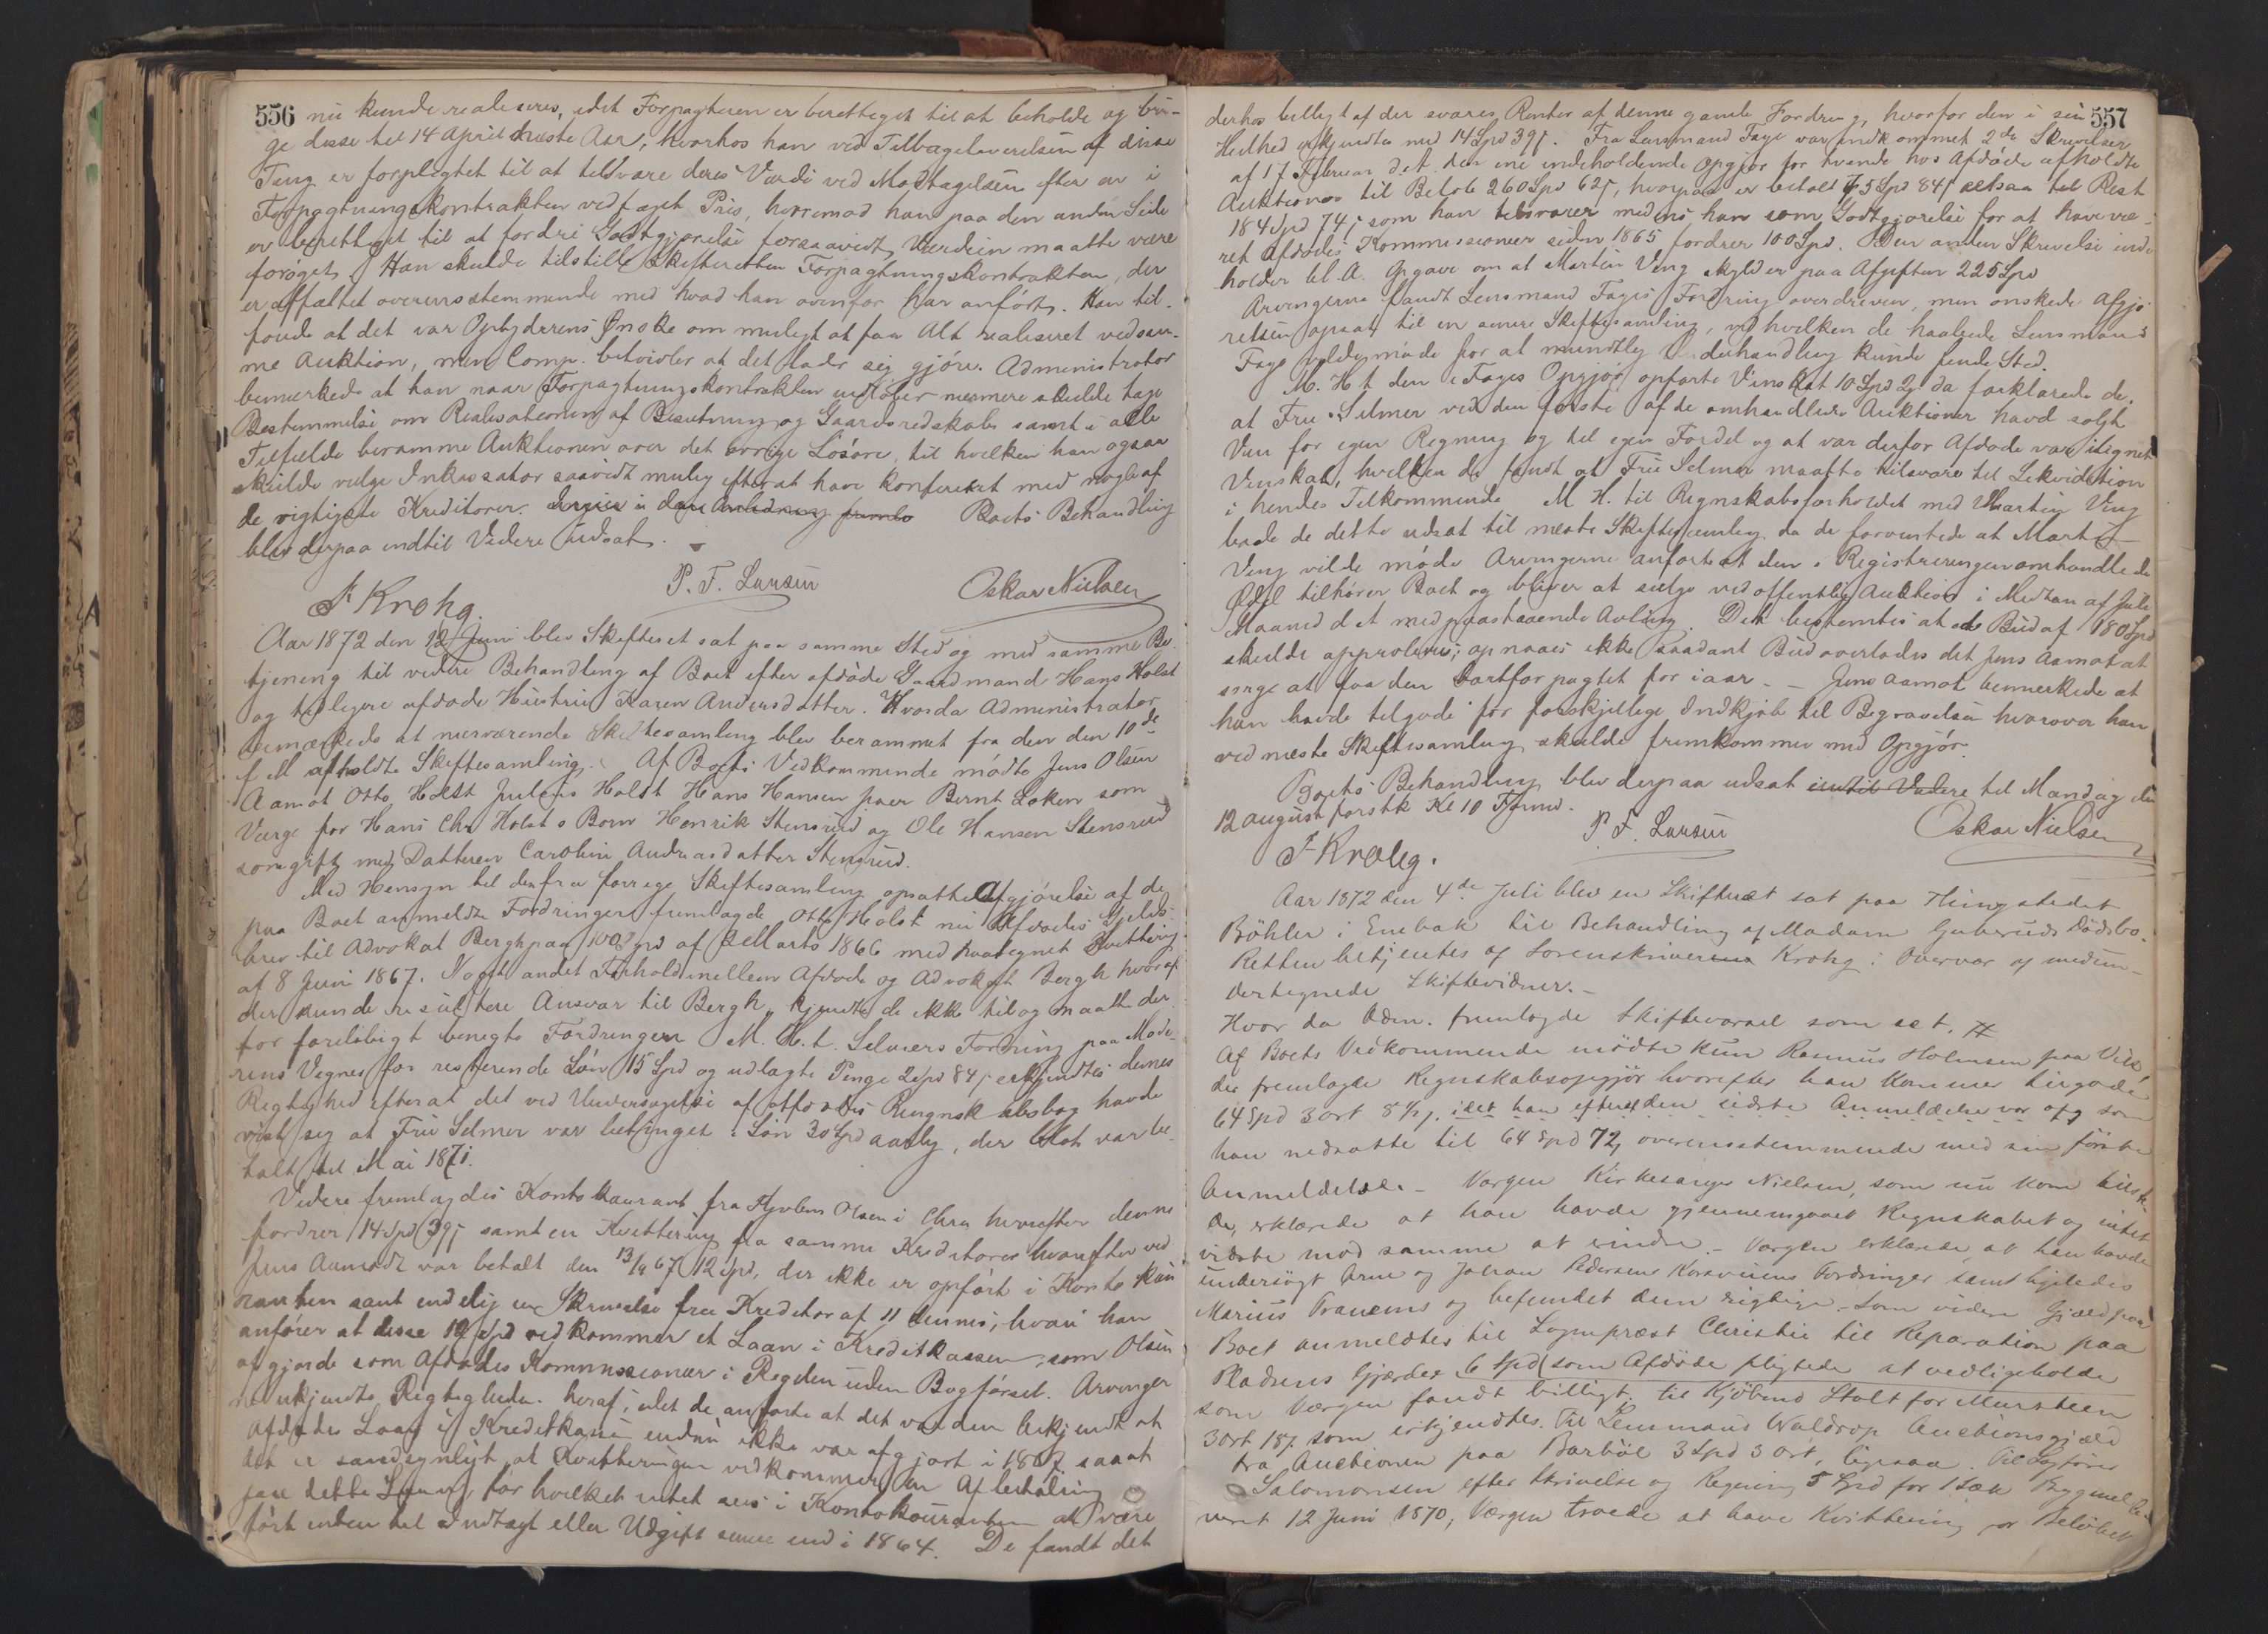 556
nu kunde realiseres, idet Forpagteren er berettiget til at beholde og bru-
ge disse til 14 April næste Aar, hvorhos han ved Tilbageleverelsen af disse
Ting er forpligtet til at tilsvare deres Værdi ved Modtagelsen efter en i
Forpagtningskontrakten vedføiet Pris, hvorimod han paa den anden Side
er berettiget til at fordre Godtgjørelse forsaavidt Værdien maatte være
forøget. Han skulde tilstille Skifteretten Forpagtningskontrakten, der
er affattet overensstemmende med hvad han ovenfor har anført. Han til-
føiede at det var Opbyderens Ønske om muligt at faa Alt realiseret ved sam-
me Auktion, men Comp. betvivler at det lader sig gjøre. Administrator
bemærkede at han naar Forpagtningskontrakten indløber nærmere skulde tage
Bestemmelse om Realisationen af Besætning og Gaardsredskaber samt i alle
Tilfælde beramme Auktionen over det øvrige Løsøre, til hvilken han ogsaa
skulde vælge Inkassator saavidt mulig efter at have konfereret med nogle af
de vigtigste Kreditorer. Ingen i den Anledning fremko Boets Behandling
blev derpaa indtil Videre udsat.
J Krohg. P. F. Larsen Oskar Nielsen
Aar 1872 den 12 Juni blev Skifteret sat paa samme Sted og med samme Be-
tjening til videre Behandling af Boet efter afdøde Gaardmand Hans Holst
og tidligere afdøde Hustru Karen Andersdatter. Hvorda Administrator
bemærkede at nærværende Skiftesamling blev berammet fra den den 10de
f M afholdte Skiftesamling. Af Boets Vedkommende mødte Jens Olsen
Aamot Otto Holst Julius Holst Hans Hansen paer Bernt Løken som
Værge for Hans Chr Holsts Børn Henrik Stensrud og Ole Hansen Stensrud
som gift med Datteren Caroline Andreasdatter Stensrud.
Med Hensyn til den fra forrige Skiftesamling opsatte Afgjørelse af de
paa Boet anmeldte Fordringer fremlagde Otto Holst nu Afdødes Gjelds-
brev til Advokat Bergh paa 100 Spd af Marts 1866 med paategnet Qvittering
af 8 Juni 1867. Noget andet Forhold mellem Afdøde og Advokat Bergh hvoraf
der kunde resultere Ansvar til Bergh, kjendte de ikke til og maatte der-
for foreløbigt benegte Fordringen M. H. t. Selmers Fordring paa Mode-
rens Vegne for resterende Løn 15 Spd og udlagte Penge 2 Spd 84 s erkjendtes dennes
Rigtighed efterat det ved Undersøgelse af afdødes Regnskabsbog havde
vist sig at Fru Selmer var betinget i Løn 30 Spd aarlig, der blot var be-
talt til Mai 1871.
Videre fremlagdes Kontokourant fra Hjelm Olsen i Chra hvorefter denne
fordrer 14 Spd 39 s samt en Kvittering fra samme Kreditorer hvorefter ved
Jens Aamodt var betalt den 13/4 67 12 Spd, der ikke er opført i Konto kou
ranten samt endelig en Skrivelse fra Kreditor af 11 dennes, hvori han
anfører at disse 12 Spd vedkommer et Laan i Kreditkassen, som Olsen
afgjorde som Afdødes Kommissionær i Regelen uden Bogførsel. Arvinger
ne erkjendte Rigtigheden heraf, idet de anførte at det var dem bekjendt at
Afdødes Laan i Kreditkassen endnu ikke var afgjort i 1867 saaat
det er sandsynligt at Qvitteringen vedkommer en Afbetaling
paa dette Laan, for hvilket intet sees i Kontokouranten at være
ført enten til Indtægt eller Udgift senere end i 1864. De fandt det
557
derhos billigt af der svares Renter af denne gamle Fordring, hvorfor den i sin
Helhed erkjendtes med 14 Spd 39 s. Fra Lensmand Fage var indkommet 2de Skrivelser
af 17 Februar det den ene indeholdende Opgjør for tvende hos Afdøde afholdte
Auktioner til Beløb 260 Spd 62 s, hvorpaa er betalt 75 Spd 84 s altsaa til Rest
184 Spd 74 s som han tilsvarer medens han som Godtgjørelse for at have væ-
ret Afdødes Kommissionær siden 1865 fordrer 100 Spd. Den anden Skrivelse inde
holder bl. A. Opgave om at Martin Ving skylder paa Afgiften 225 Spd
Arvingerne fandt Lensmand Fages Fordring overdreven, men ønskede Afgjø-
relsen opsat til en senere Skiftesamling, ved hvilken de haabede Lensmand
Fage vilde møde for at mundtlig Underhandling kunde finde Sted.
M. H. t den i Fages Opgjør opførte Vinskat 10 Spd 2 s da forklarede de,
at Fru Selmer ved den første af de omhandlede Auktioner havd solgt
Vin for egen Regning og til egen Fordel og at var derfor Afdøde var ilignet
Vinskat, hvilken de fandt at Fru Selmer maatte tilsvare til Likvidation
i hendes Tilkommende M. H. til Regnskabsforholdet med Martin Ving
bade de dette udsat til næste Skiftesamling da de forventede at Martin
Ving vilde møde Arvingerne anførte at den i Registreringen omhandlede
Ødel tilhører Boet og bliver at sælge ved offentlig Auktion i Midten af Juli
Maaned det med paastaaende Avling. Det bestemtes at et Bud af 180 Spd
skulde approberes; opnaaes ikke saadant Bud overlodes det Jens Aamot at
sørge at faa den bortforpagtet for iaar. — Jens Aamot bemærkede at
han havde tilgode for forskjellige Indkjøb til Begravelsen hvorover han
ved næste Skiftesamling skulde fremkomme med Opgjør.
Boets Behandling blev derpaa udsat indtil Videre til Mandag den
12 august førstk Kl 10 Formd.
J Krohg. P. F. Larsen Oskar Nielsen
Aar 1872 den 4de Juli blev en Skifteret sat paa Thingstedet
Böhler i Enebak til Behandling af Madam Guberuds Dödsbo.
Retten betjentes af Sorenskriveren Krohg i Overvær af medun-
dertegnede Skiftevidner. —
Hvor da Adm. fremlagde Skiftevarsel som sat.
Af Boets Vedkommende mødte kun Rasmus Holmsen paa
der fremlagde Regnskabsopgjör hvorefter han kommer tilgode
64 Spd 3 ort 8 1/2 s. idet han efterat den sidste Anmeldelse var som
han nedsatte til 64 Spd 72 s overensstemmende med sin förste
Anmeldelse. — Værgen Kirkesanger Nielsen, som nu kom tilste-
de, erklærede at han havde gjennemgaaet Regnskabet og intet
vidste mod samme at erindre. — Værgen erklærede at han havde
undersögt Arne og Johan Pedersens Korsvinens Fordringer samt ligeledes
Marius Tranems og befundet dem rigtige. — Som videre Gjæld paa
Boet anmeldtes til Sognepræst Christie til Reparation paa
Pladsens Gjærder 6 Spd (som Afdöde pligtede at vedligeholde
som Værgen fandt billigt, til Kjöbmd Stolt for Mursteen
3 ort 18 s. som erkjendtes. Til Lensmand Waldrop Auctionsgjæld
fra Auctionen paa Barböl 3 Spd 3 Ort, ligesaa. Til Sagförer
Salomonsen efter Skrivelse og Regning 5 Spd for 1 Sæk Bygmel le-
veret 12 Juni 1870, Værgen troede at have Kvittering for Belöbet